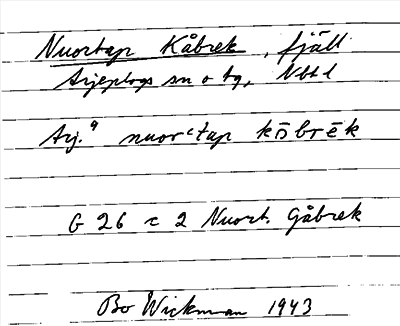 Nuortap Kåbrek, fjäll
Arjeplogs sn o tg, Nbtl
Arj. 9 nuorctap kōbrēk
G 26 c 2 Nuort. Gåbrek
Bo Wickman 1943